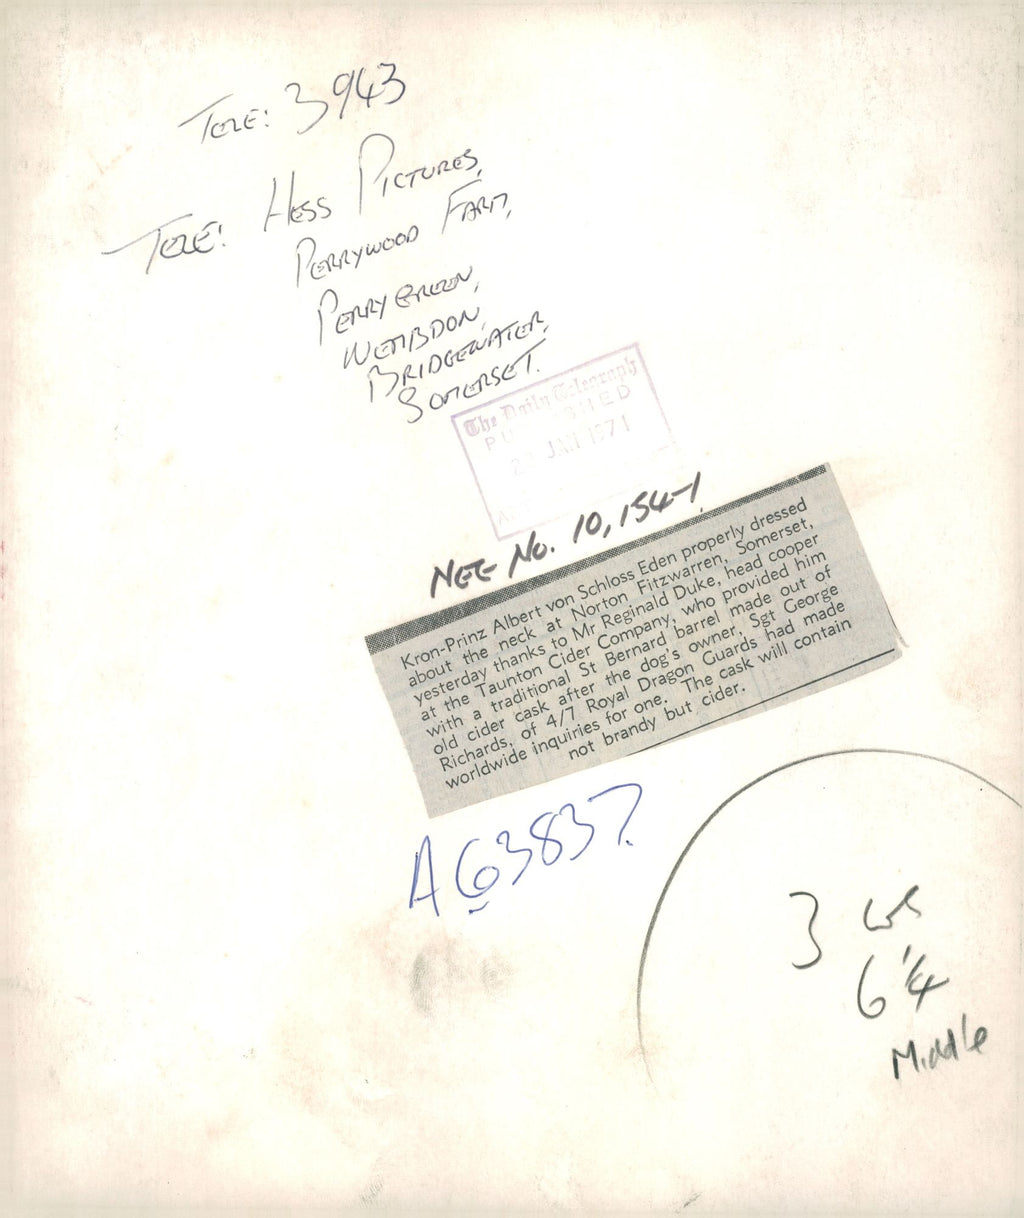 TELE: 3943
TELE: HESS PICTURES,
PERRYWOOD FARM,
PERRY GREEN,
WEMBDON,
BRIDGEWATER,
SOMERSET.
The Daily Telegraph
JAN 1971
NEG No. 10,154-1
Kron-Prinz Albert von Schloss Eden properly dressed
about the neck at Norton Fitzwarren, Somerset,
yesterday thanks to Mr Reginald Duke, head cooper
at the Taunton Cider Company, who provided him
with a traditional St Bernard barrel made out of
old cider cask after the dog's owner, Sgt George
Richards, of 4/7 Royal Dragon Guards had made
worldwide inquiries for one. The cask will contain
not brandy but cider.
A63837
3
6 1/4
Middle